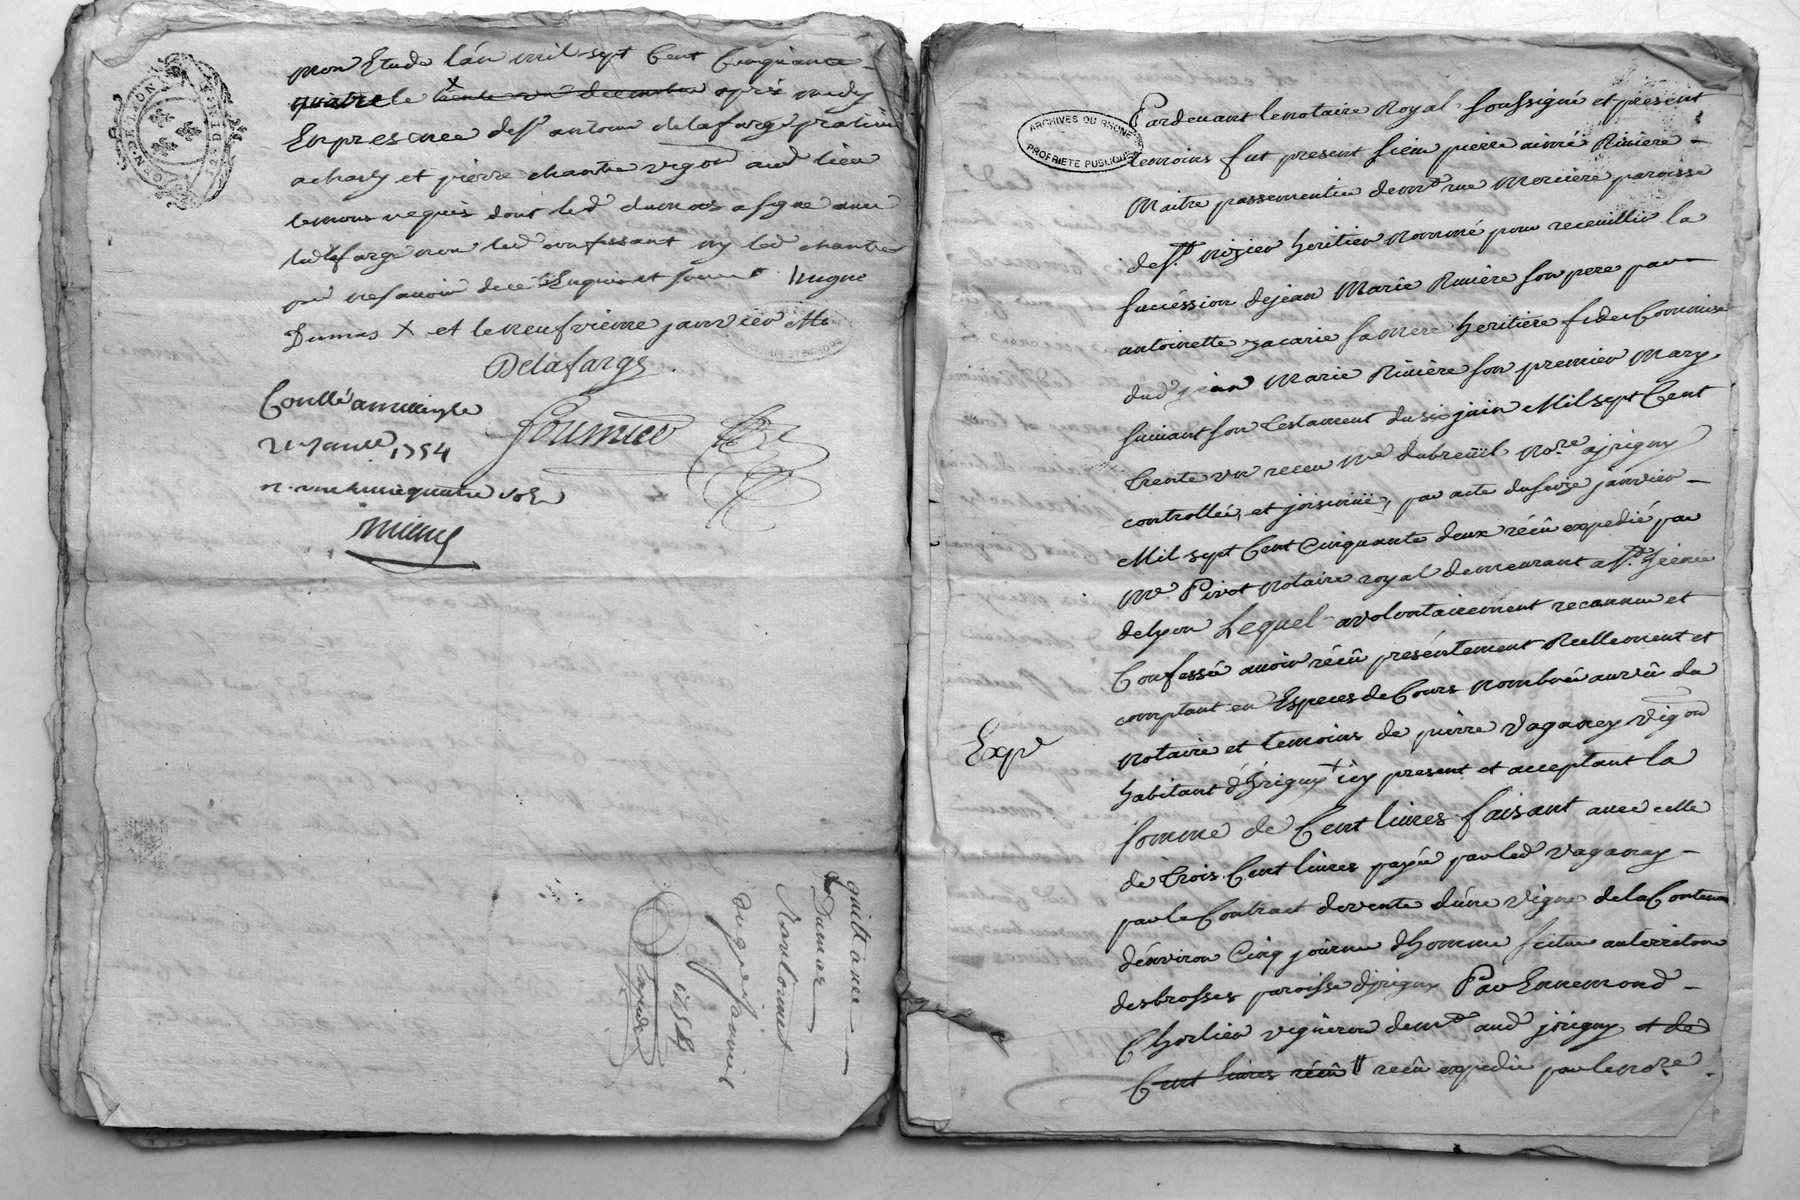 GEN. DE LYON
mon Etude l'an mil sept Cent Cinquante
quatre le trente un decembre apres midy
En presence de sr antoine delafarge praticien
a charly et pierre chantre vigon aud lieu
temoins requis dont led dumas a signe avec
led lafarge non led confessant ny led chantre
pour ne savoir de ce Enquis et sommé
Dumas X et le neufvieme janvier
Delafarge
Conllé a millery le
21 janvr 1754
fournier
quittance
Dumas
Montomet
du 9e janvier
1754
ARCHIVES DU RHONE
PROPRIETE PUBLIQUE
Pardevant le notaire Royal soussigné et present
temoins fut present sieur pierre aimé Riviere
Maitre passementier demt rue Merciere paroisse
de st nizier heritier nommé pour receuillir la
succéssion de jean Marie Riviere son pere par
antoinette zacarie sa mere heritiere fidei Commise
dud jean Marie Riviere son premier Mary
suivant son testament du six juin Mil sept Cent
trente un receu Me dubreüil nore a jrigny
controllée, et jnsinüé, par acte du seize janvier
Mil sept Cent Cinquante deux récû expedié par
Me Pivot notaire royal demeurant a st Irénée
de lyon Lequel a volontairement reconnu et
Confessé avoir récû présentement Réellement et
comptant en Especes de Cours nombrée au vû du
notaire et temoins de pierre Vaganey Vigon
habitant d'Jrigny + icy present et acceptant la
Expé
somme de Cent livres faisant avec celle
de trois Cent livres payée par led Vaganey
par le Contract de vente d'une Vigne de la Contenue
d'environ Cinq journée d'homme scitue au territoire
des brosses paroisse d'jrigny Par Ennemond
Chorlieu Vigneron demt aud jrigny et de
Cent livres récû # recû expedié par le nore